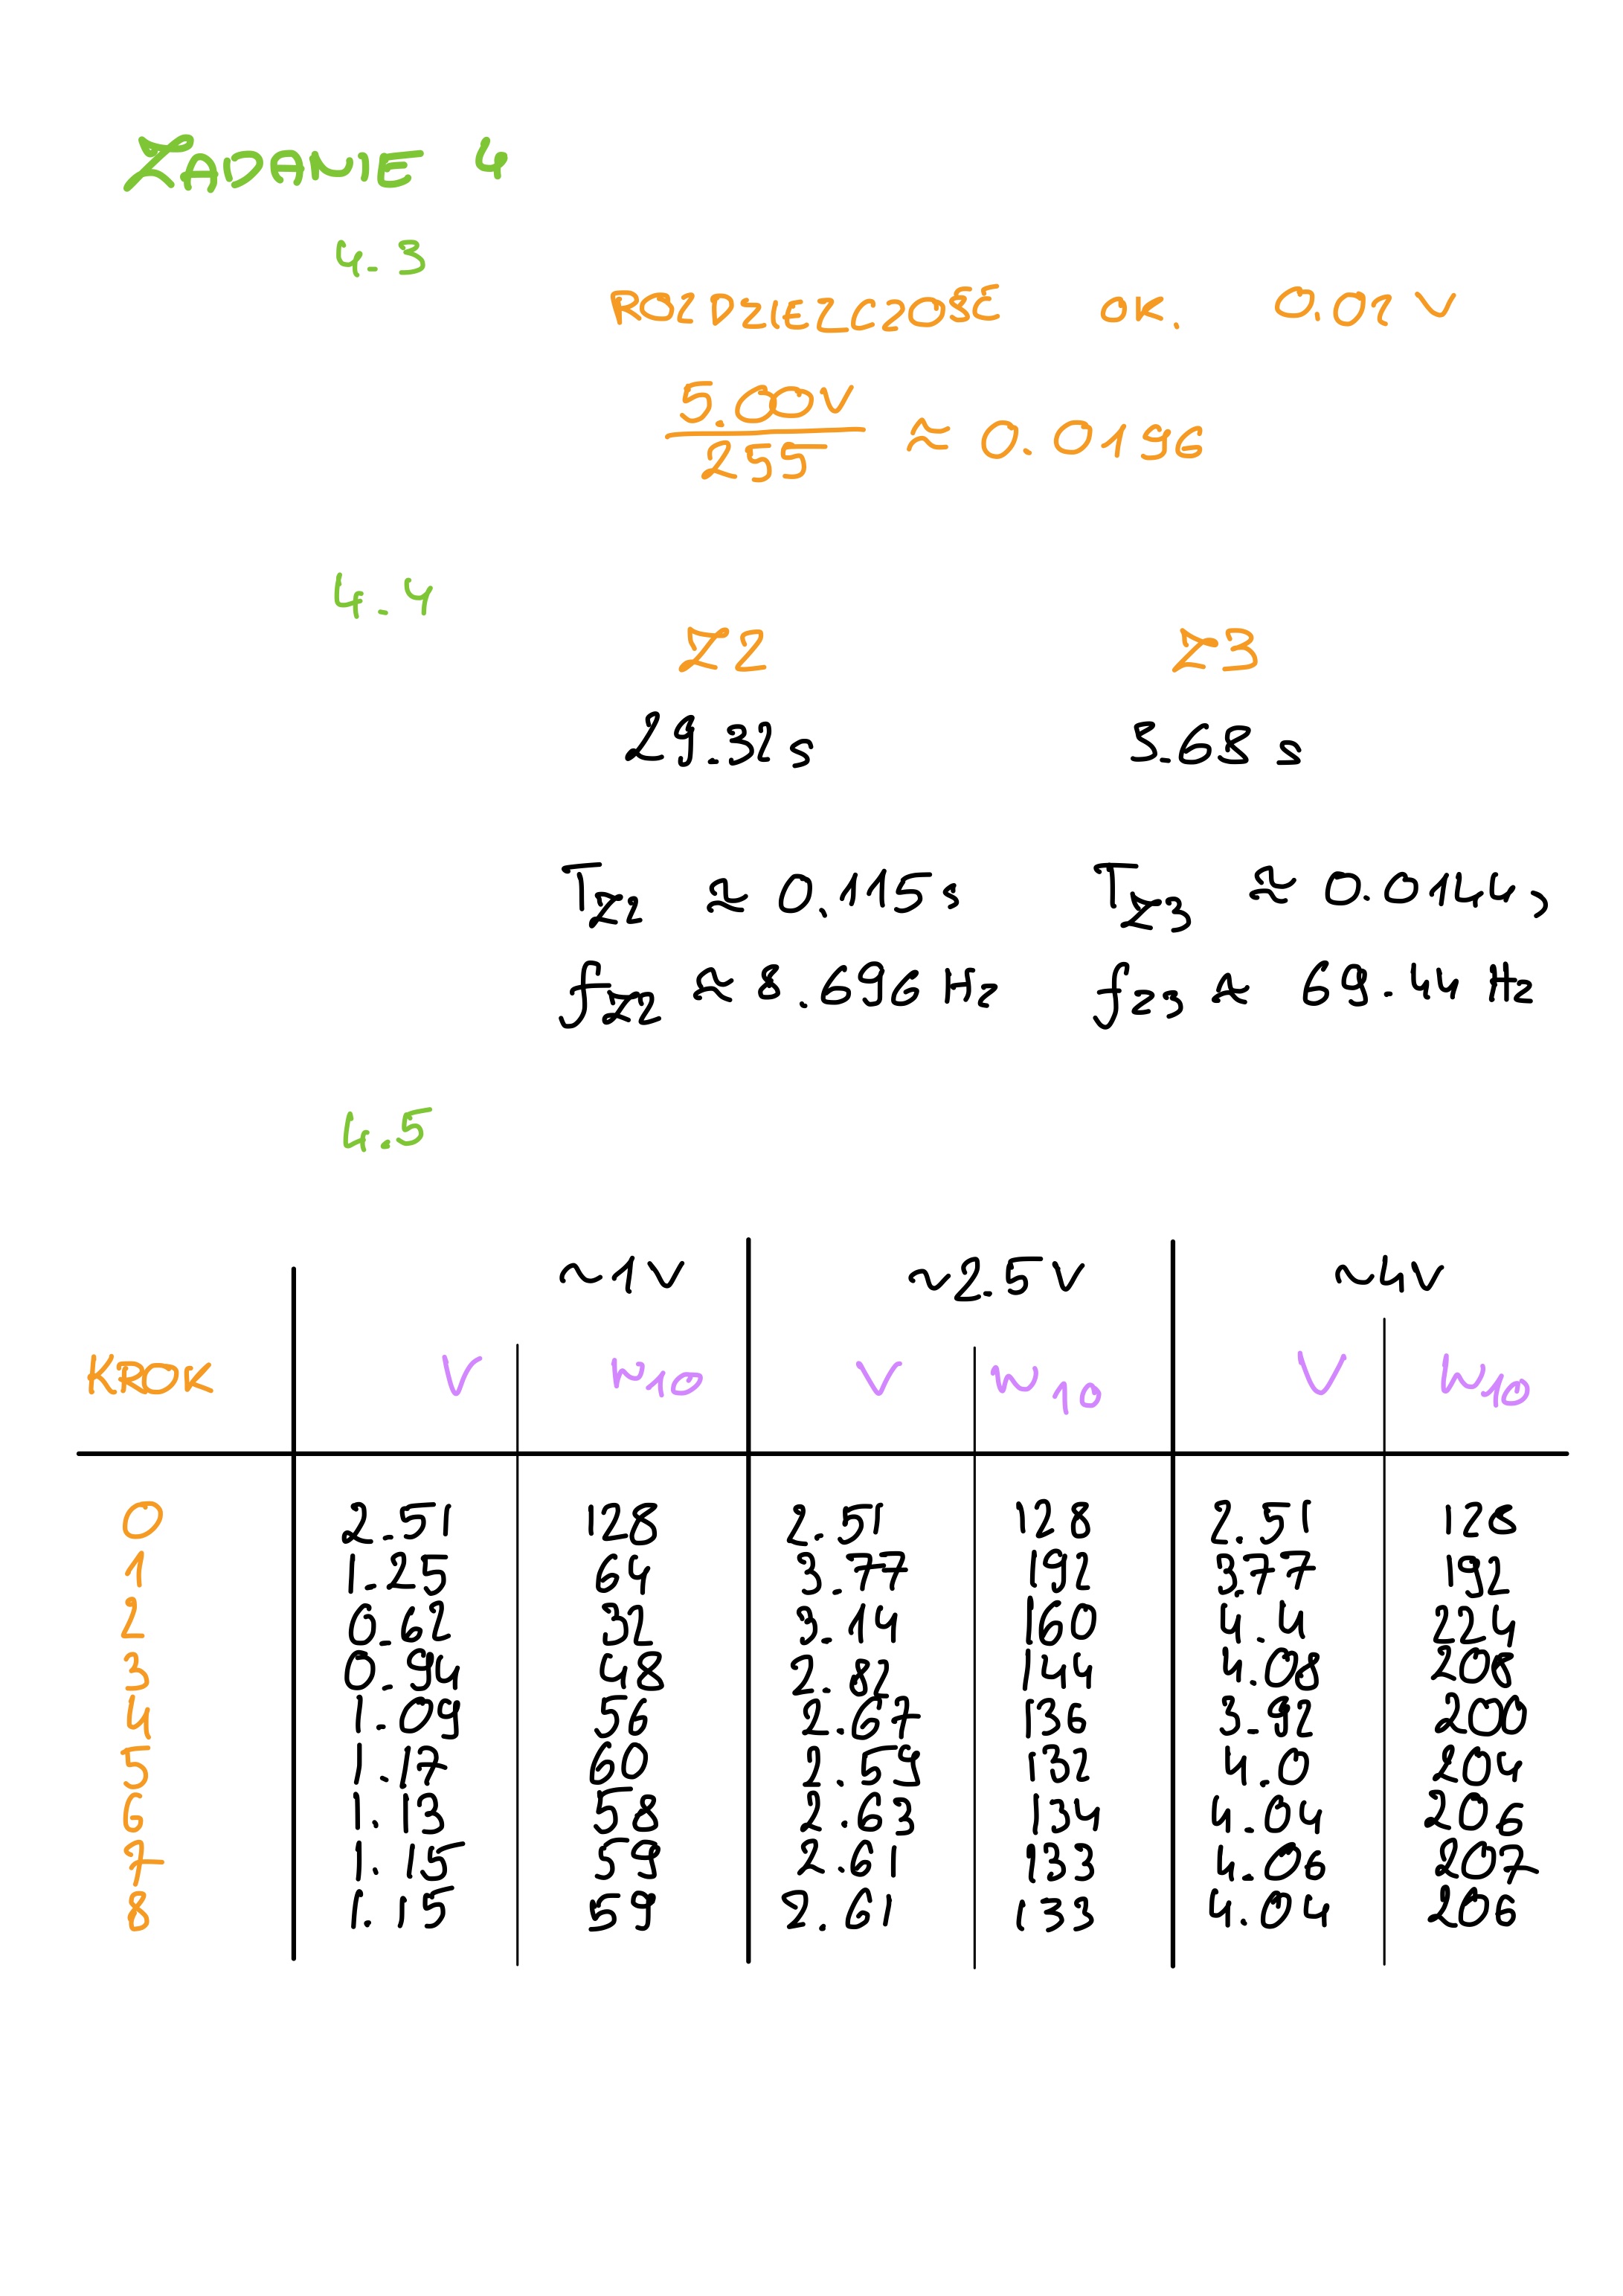 ZADANIE 4
4.3
ROZDZIELCZOŚĆ OK. 0.02 V
5.00V
255 ≈ 0.0196
4.4
Z2 Z3
29.32 s 3.68 s
T Z2 ≈ 0.115 s T Z3 ≈ 0.0144 s
f Z2 ≈ 8.696 Hz f Z3 ≈ 69.44 Hz
4.5
~1V ~2.5V ~4V
KROK V W10 V W10 V W10
0 2.51 128 2.51 128 2.51 128
1 1.25 64 3.77 192 3.77 192
2 0.62 32 3.14 160 4.4 224
3 0.94 48 2.82 144 4.08 208
4 1.09 56 2.67 136 3.92 200
5 1.17 60 2.59 132 4.0 204
6 1.13 58 2.63 134 4.04 206
7 1.15 59 2.61 133 4.06 207
8 1.15 59 2.61 133 4.04 206